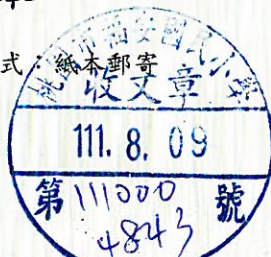 式：紙本郵寄
桃園市福安國民小學
收文章
111. 8. 09
第111000
4843號